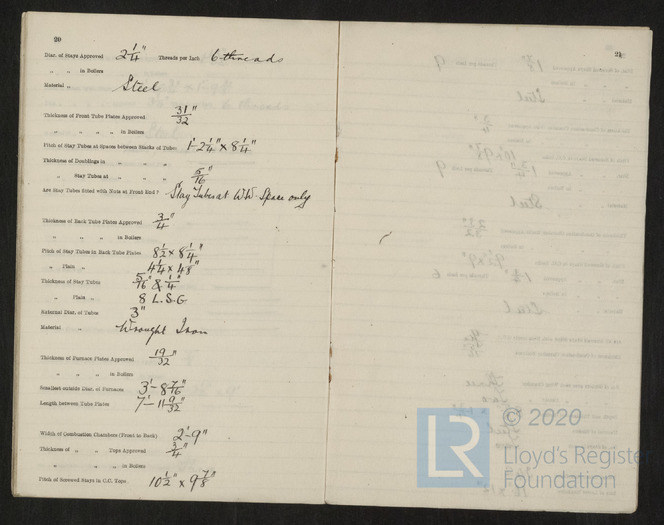 20
Diar. of Stays Approved 2 1/4" Threads per Inch 6 threads
„ „ in Boilers
Material „ Steel
Thickness of Front Tube Plates Approved 31/32"
„ „ „ „ in Boilers
Pitch of Stay Tubes at Spaces between Stacks of Tubes 1'-2 1/4" x 8 1/4"
Thickness of Doublings in „ „ „ „
„ Stay Tubes at „ „ „ 5/16"
Are Stay Tubes fitted with Nuts at Front End? Stay Tubes at W.W. Space only
Thickness of Back Tube Plates Approved 3/4"
„ „ „ „ in Boilers
Pitch of Stay Tubes in Back Tube Plates 8 1/2 x 8 1/4"
„ Plain „ 4 1/4 x 4 1/8"
Thickness of Stay Tubes 5/16" & 1/4"
„ Plain „ 8 L.S.G
External Diar. of Tubes 3"
Material „ Wrought Iron
Thickness of Furnace Plates Approved 19/32"
„ „ „ in Boilers
Smallest outside Diar. of Furnaces 3'-8 7/16"
Length between Tube Plates 7'-11 9/32"
Width of Combustion Chambers (Front to Back) 2'-9"
Thickness of „ „ Tops Approved 3/4"
„ „ „ „ in Boilers
Pitch of Screwed Stays in C.C. Tops 10 1/2" x 9 7/8"
21
© 2020
LR
Lloyd's Register
Foundation